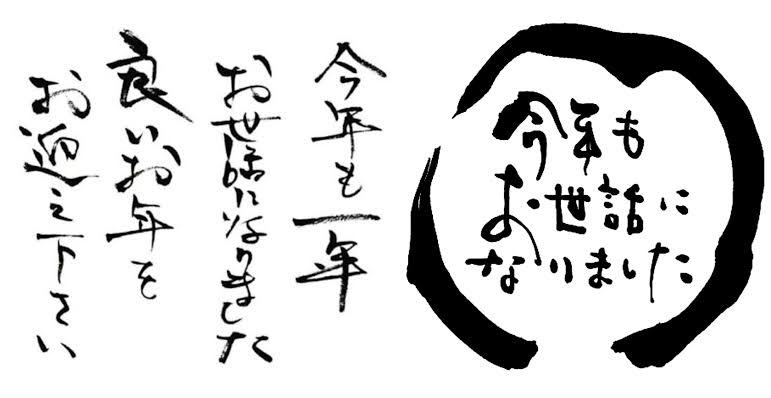 今年も一年
お世話になりました
良いお年を
お迎え下さい
今年も
お世話に
なりました